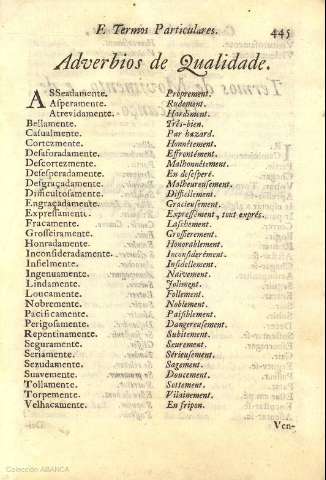 E Termos Particulares. 445
Adverbios de Qualidade.
ASSeadamente. Proprement.
Asperamente. Rudement.
Atrevidamente. Hardiment.
Bellamente. Très-bien.
Casualmente. Par hazard.
Cortezmente. Honnêtement.
Desaforadamente. Effrontément.
Descortezmente. Malhonnêtement.
Desesperadamente. En desesperé.
Desgraçadamente. Malheureusement.
Difficultosamente. Difficilement.
Engraçadamente. Gracieusement.
Expressament. Expressément, tout exprés.
Fracamente. Laschement.
Grosseiramente. Grossierement.
Honradamente. Honorablement.
Inconsideradamente. Inconsiderément.
Infielmente. Infidellement.
Ingenuamente. Naïvement.
Lindamente. Joliment.
Loucamente. Follement.
Nobremente. Noblement.
Pacificamente. Paisiblement.
Perigosmente. Dangereusement.
Repentinamente. Subitement.
Seguramente. Seurement.
Seriamente. Sérieusement.
Sezudamente. Sagement.
Suavemente. Doucement.
Tollamente. Sottement.
Torpemente. Vilainement.
Velhacamente. En fripon.
Ven-
Colección ABANCA